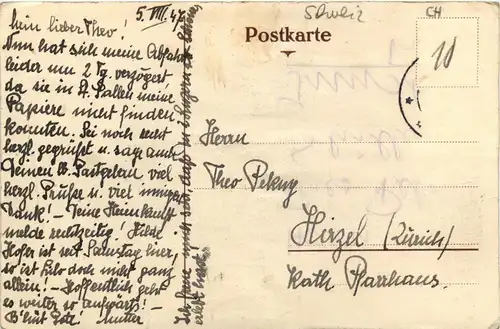 5. VIII. 47
Mein lieber Theo!
Nun hat sich meine Abfahrt
leider um 2 Tg. verzögert
da sie in St. Gallen meine
Papiere nicht finden
konnten. Sei noch recht
herzl. gegrüßt u. sag auch
Deinen lb. Gastgebern viel
herzl. Grüße u. viel innigen
Dank! – Deine Heimkunft
melde rechtzeitig! Hilde
Hofer ist seit Samstag hier,
so ist Lilo doch nicht ganz
allein! – Hoffentlich geht
es weiter so aufwärts! –
B'hüt Gott! Mutter
Ich freue mich sehr, daß du übrigens so
erlebt hast.
Schweiz
CH
Postkarte
10
Herrn
Theo Pekny
Hirzel (Zürich)
Kath Pfarrhaus.